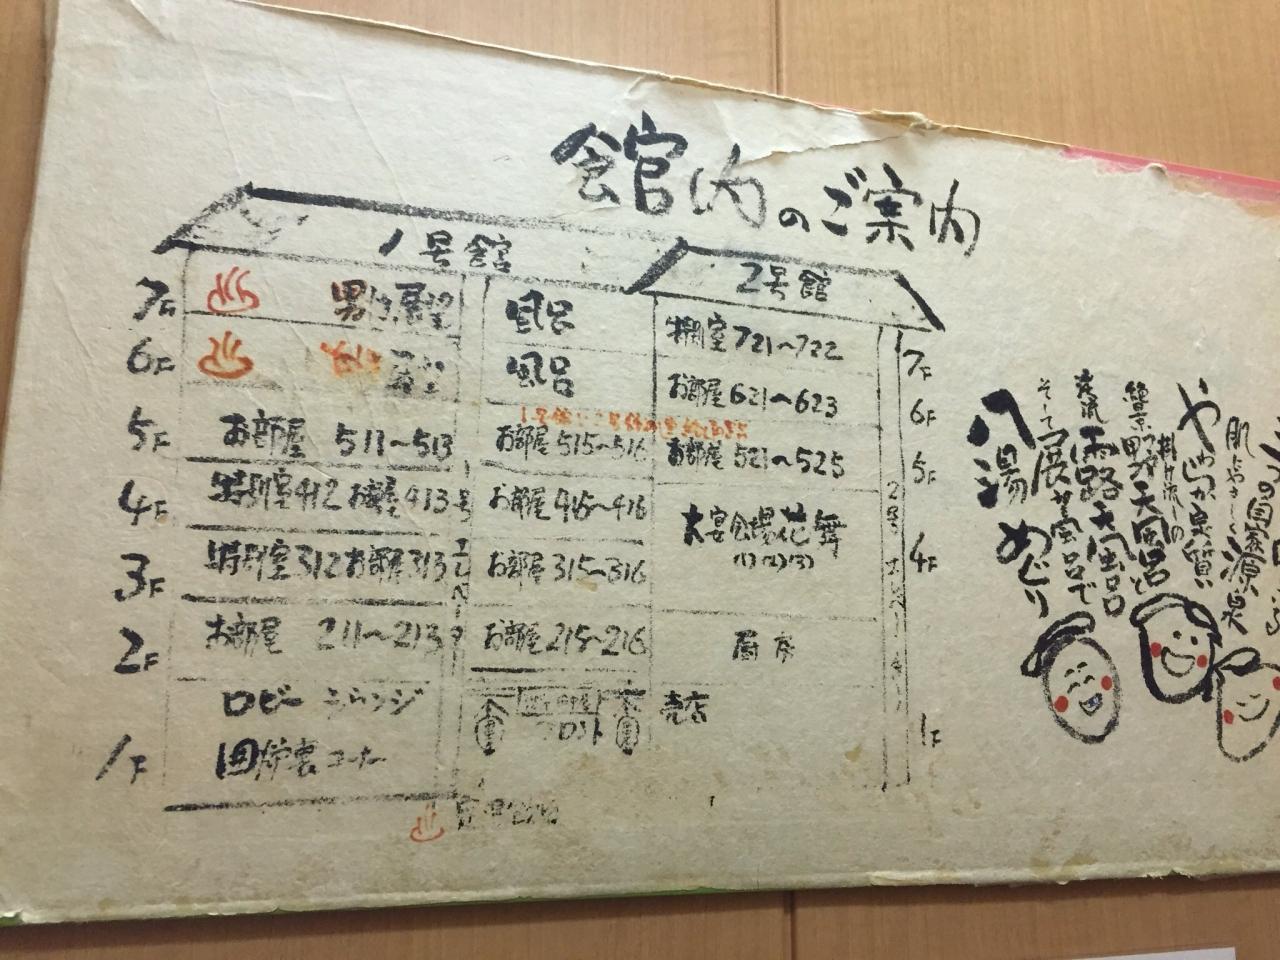 館内のご案内
1号館
2号館
7F 男性展望 風呂 特別室721〜722 7F
6F 女性展望 風呂 お部屋621〜623 6F
1号館と2号館の連絡通路
5F お部屋 511〜513 お部屋515〜516 お部屋521〜525 5F
4F 特別室412 お部屋413 お部屋415〜416 大宴会場花舞 4F
(1)(2)(3)
3F 特別室312 お部屋313 お部屋315〜316
2F お部屋 211〜213 お部屋215〜216 厨房
1F ロビーラウンジ フロント 売店 1F
囲炉裏コーナー
足湯
1号エレベーター
2号エレベーター
肌にやさしく
源泉
やわらか良質い
掛け流しの
絶景
大風呂と
渓流露路大風呂
そして展望風呂で
八湯めぐり